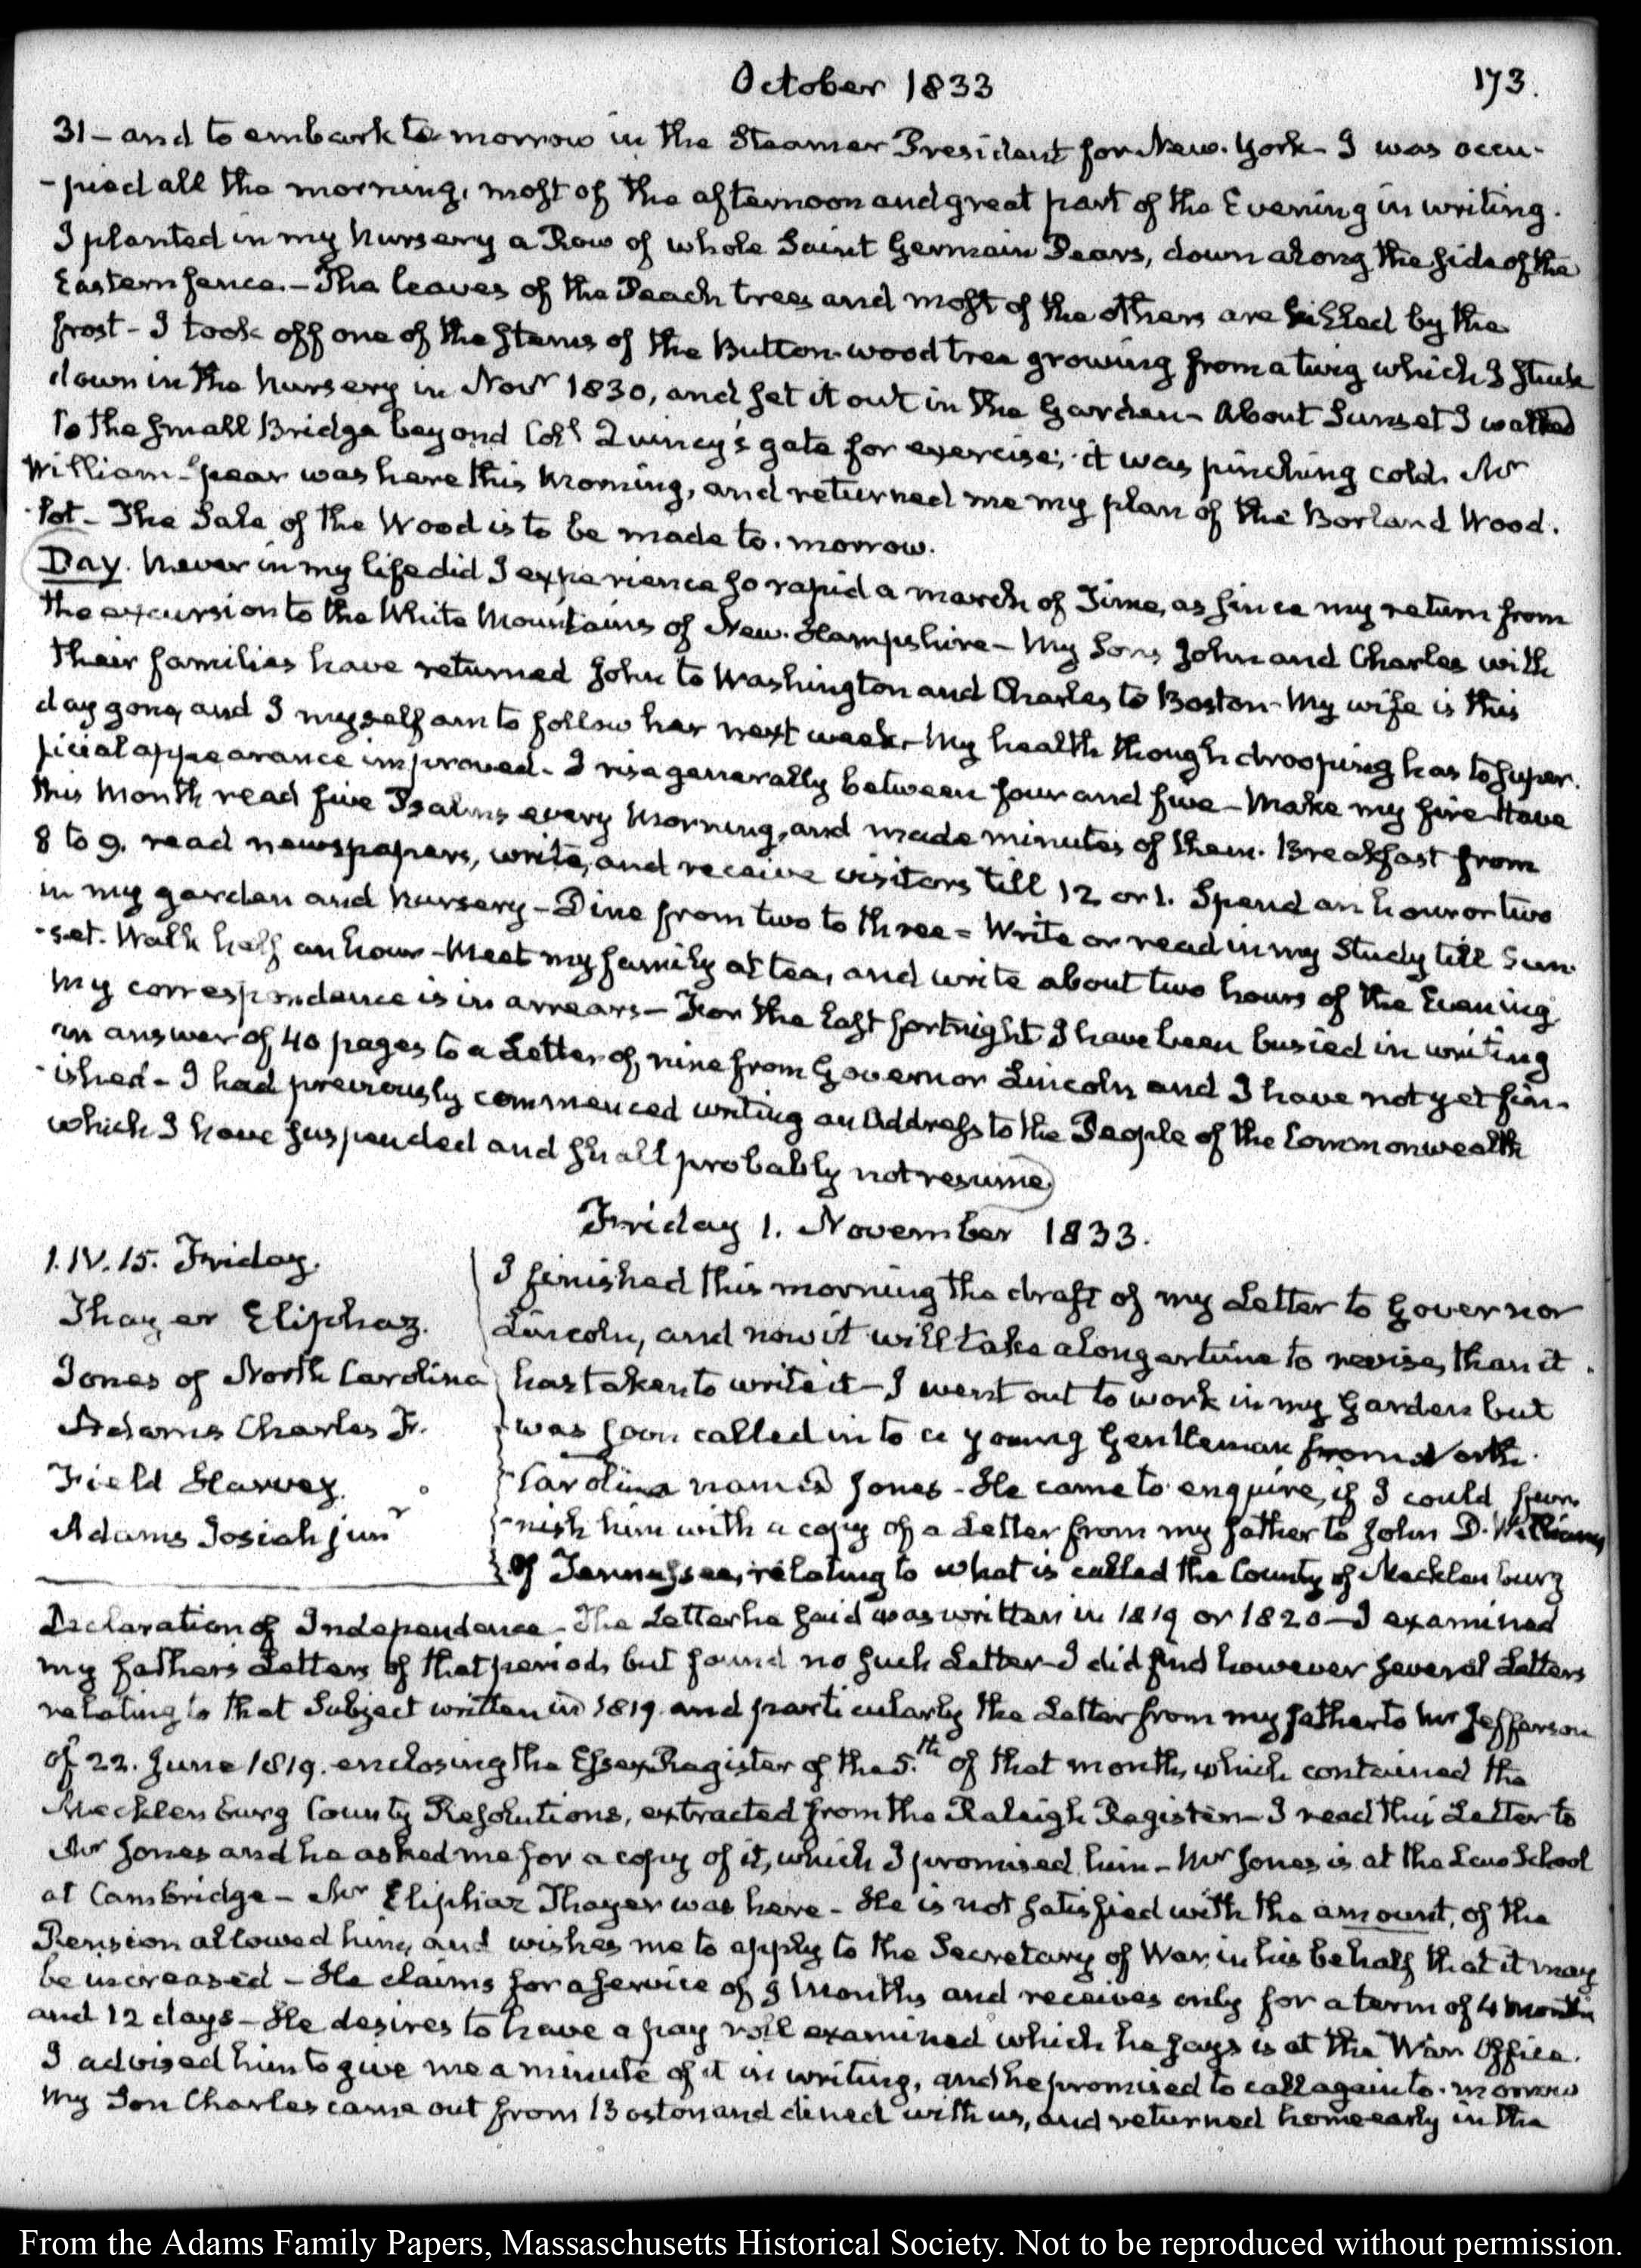 October 1833
173.
31 – and to embark to-morrow in the Steamer President for New-York – I was occu-
-pied all the morning, most of the afternoon and great part of the Evening in writing.
I planted in my Nursery a Row of whole Saint Germain Pears, down along the side of the
Eastern fence. – The leaves of the Peach trees and most of the others are killed by the
frost – I took off one of the stems of the Button-wood tree growing from a twig which I stuck
down in the Nursery in Novr 1830, and set it out in the Garden – About Sunset I walked
to the small Bridge beyond Coll Quincy's gate for exercise; it was pinching cold. Mr
William Spear was here this Morning, and returned me my plan of the Borland Wood.
-lot – The Sale of the Wood is to be made to-morrow.
Day. Never in my life did I experience so rapid a march of Time, as since my return from
the excursion to the White Mountains of New-Hampshire – My Sons John and Charles with
their families have returned John to Washington and Charles to Boston – My wife is this
day gone, and I myself am to follow her next week – My health though drooping has to super-
ficial appearance improved – I rise generally between four and five – Make my fire – Have
this Month read five Psalms every Morning, and made minutes of them. Breakfast from
8 to 9. read newspapers, write, and receive visitors till 12 or 1. Spend an hour or two
in my garden and Nursery – Dine from two to three – Write or read in my Study till Sun-
-set. Walk half an hour – Meet my family at tea, and write about two hours of the Evening
My correspondence is in arrears – For the last fortnight I have been busied in writing
an answer of 40 pages to a Letter of nine from Governor Lincoln and I have not yet fin-
-ished – I had previously commenced writing an Address to the People of the Commonwealth
which I have suspended and shall probably not resume
Friday 1. November 1833.
1. IV. 15. Friday.
Thayer Eliphaz.
Jones of North Carolina
Adams Charles F.
Field Harvey
Adams Josiah junr
I finished this morning the draft of my Letter to Governor
Lincoln, and now it will take a longer time to revise, than it
has taken to write it – I went out to work in my Garden but
was soon called in to a young Gentleman from North
Carolina named Jones – He came to enquire, if I could fur-
-nish him with a copy of a Letter from my father to John D. Williams
of Tennessee, relating to what is called the County of Mecklenburg
Declaration of Independence – The Letter he said was written in 1819 or 1820 – I examined
my father's Letters of that period, but found no such Letter – I did find however several Letters
relating to that Subject written in 1819 and particularly the Letter from my father to Mr Jefferson
of 22. June 1819. enclosing the Essex Register of the 5.th of that month, which contained the
Mecklenburg County Resolutions, extracted from the Raleigh Register – I read this Letter to
Mr Jones and he asked me for a copy of it, which I promised him – Mr Jones is at the Law School
at Cambridge – Mr Eliphaz Thayer was here – He is not satisfied with the amount, of the
Pension allowed him, and wishes me to apply to the Secretary of War, in his behalf that it may
be increased – He claims for a service of 9 Months and receives only for a term of 4 months
and 12 days – He desires to have a pay roll examined which he says is at the War Office.
I advised him to give me a minute of it in writing, and he promised to call again to-morrow
My Son Charles came out from Boston and dined with us, and returned home early in the
From the Adams Family Papers, Massachusetts Historical Society. Not to be reproduced without permission.